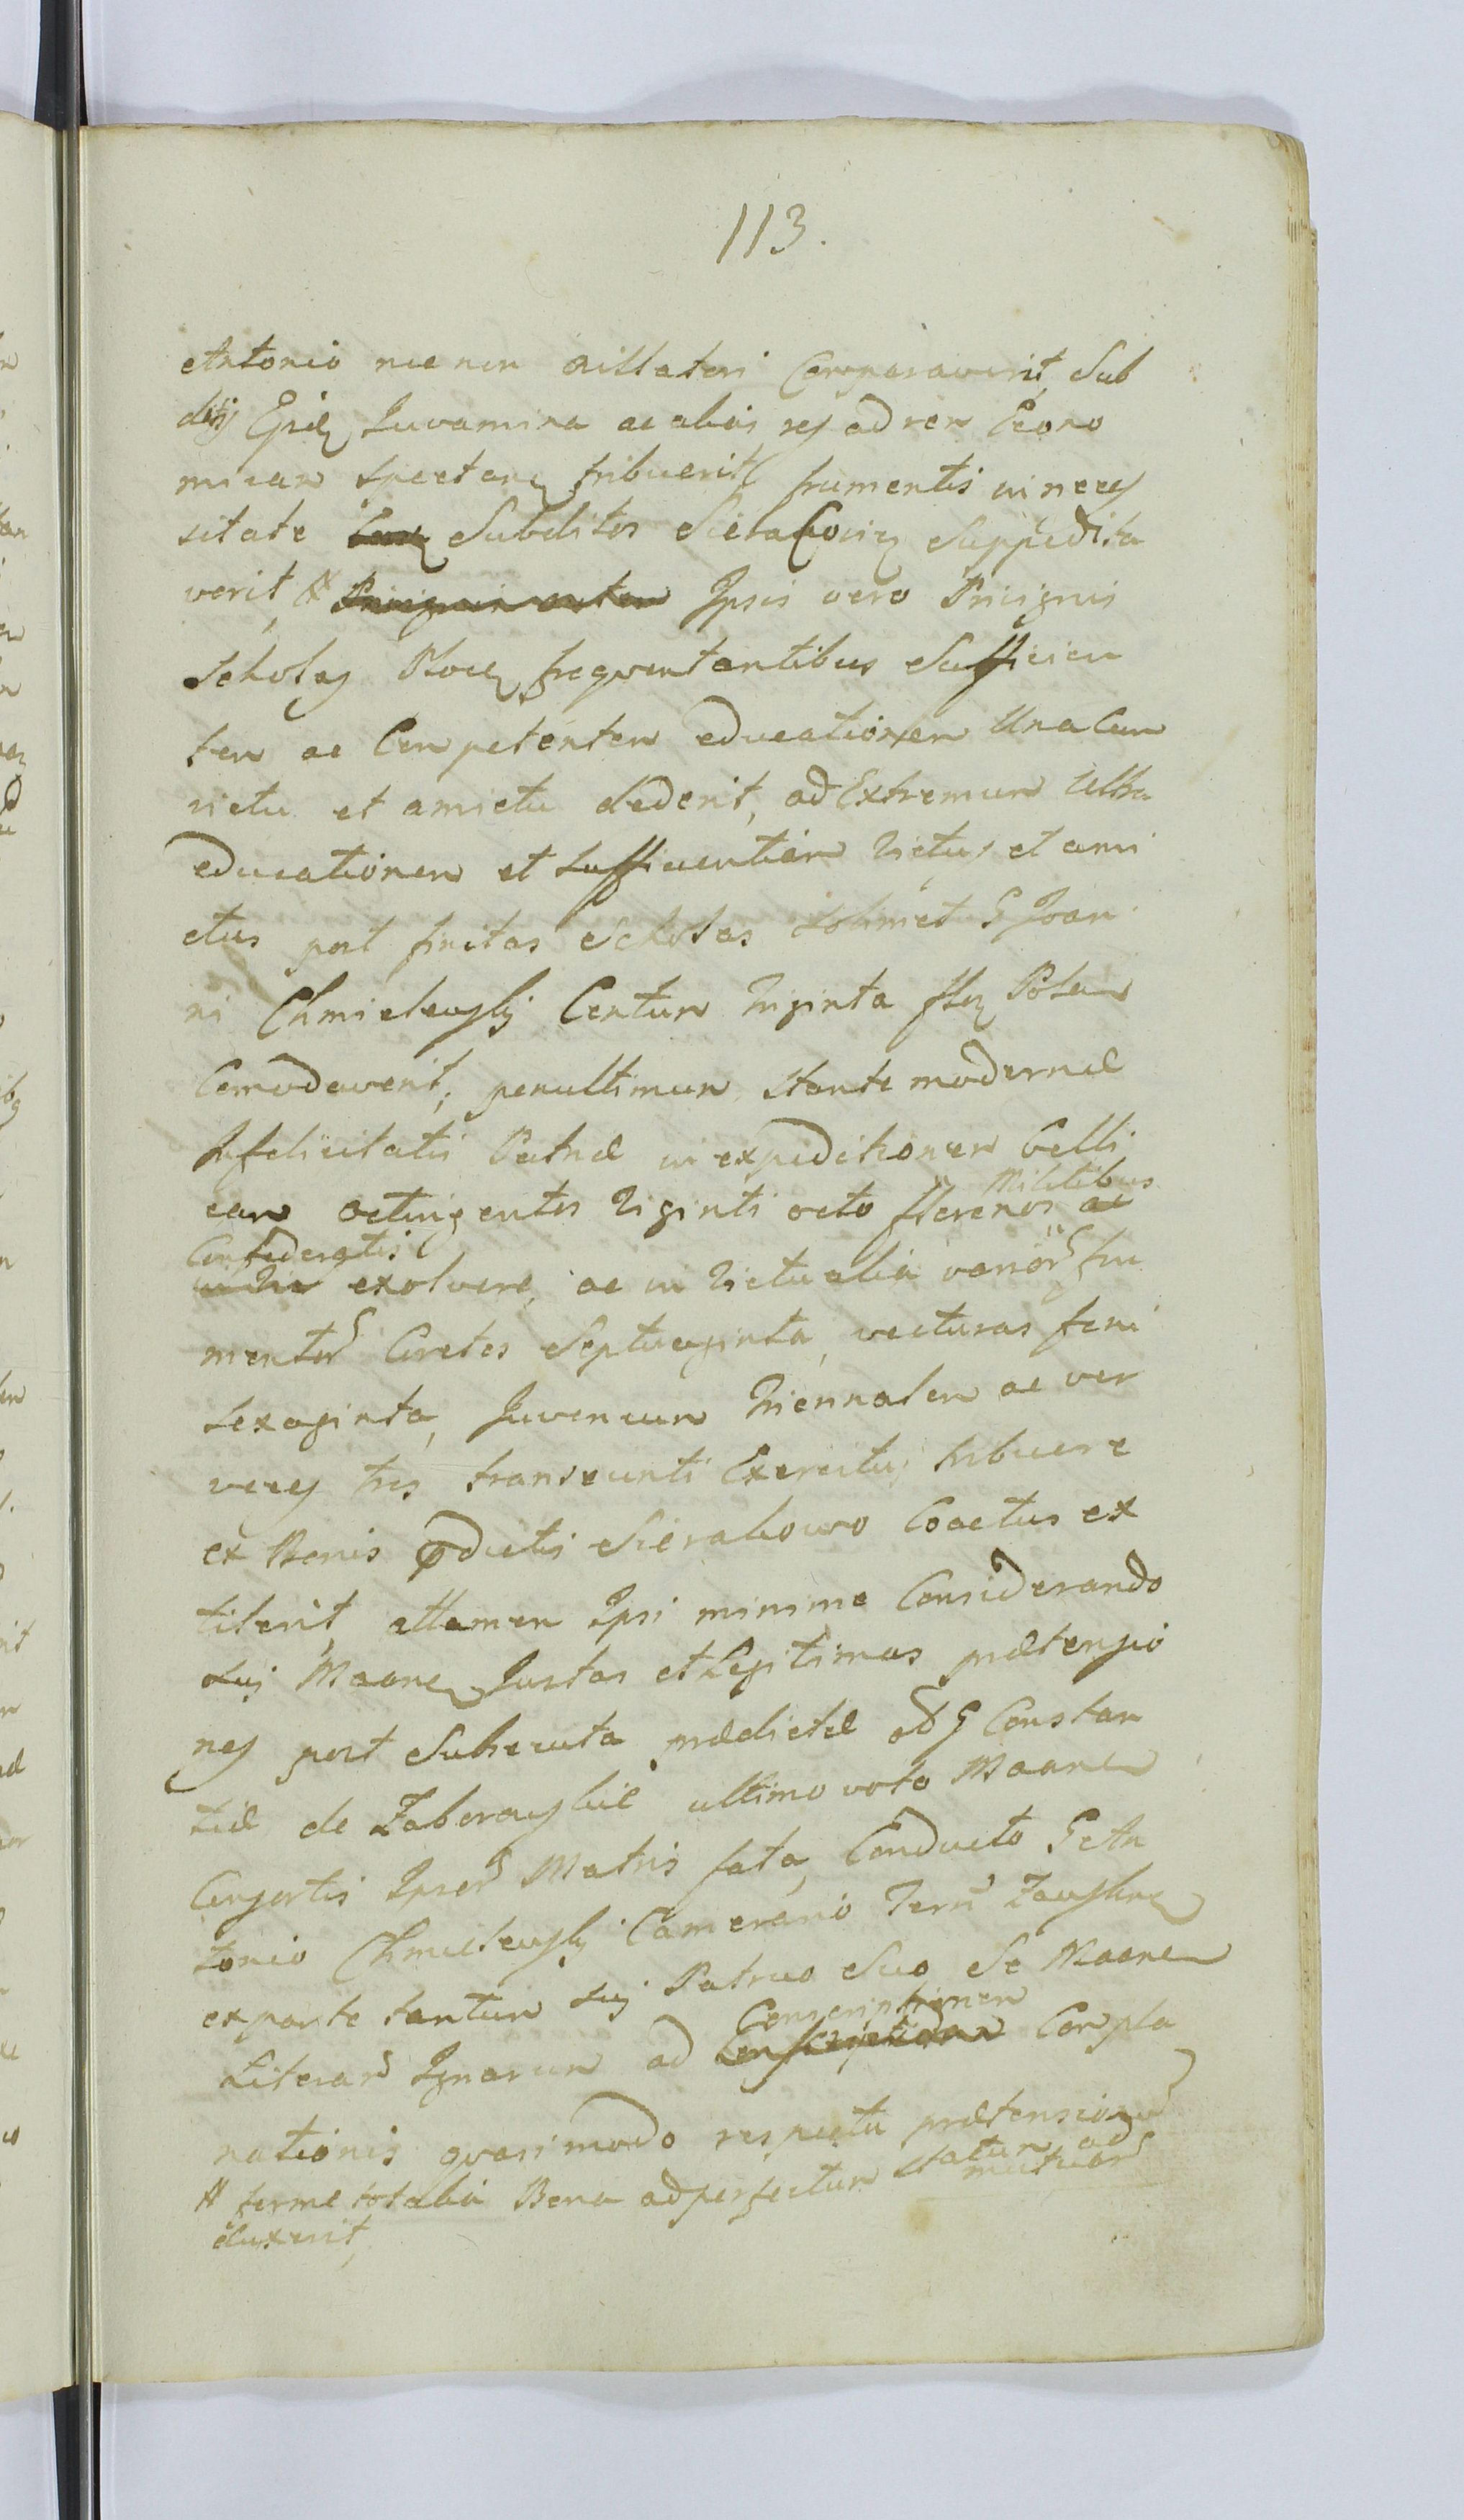 113.
Antonio nec non Aillatori Comparaverit, Sub
ditis Juvamina ac alias res ad rem Econo
micam spectan tribuerit, frumentis in neces
sitate Subditos Sierakovien Suppedita
verit, # Privignis autem Ipsis vero Privignis
Scholas Ploce frequentantibus Sufficien
tem ac Competentem educationem Una Cum
victu et amictu dederit, ad Extremum Ultra
educationem et sufficientiam victus et ami
ctus post finitas Scholas solummet G Joan
ni Chmielewski Centum triginta flor Polon
Comodaverit, penultimum stante modernæ
Infelicitatis Patriæ in expeditionem belli
cam octingentos viginti octo florenos ac Militibus
Confederatis
exolvere, ac in victualia varior fru
mentor Coretos Septuaginta, vecturas feni
sexaginta, Juvencum triennalem ac ver
veces tres transeunti Exercitui tribuere
ex Bonis prædictis Sierakowo Coactus ex
titerit, attamen Ipsi minime Considerando
sui Maane Justas et Legitimas prætensio
nes post Subsecuta prædictæ od G Constan
tiæ de Zaborowskie ultimo voto Maane
Consortis Ipsor Matris fata, Conducto G An
tonio Chmielewski Camerario Terr Zawskrzn
ex parte tantum sui Patruo Suo Se Maane
Literar Ignarum ad Conscriptionem Conscriptionem Compla
nationis quasi modo respectu prætension
mutuar
# ferme totalia Bona ad perfectum statum ad
duxerit,